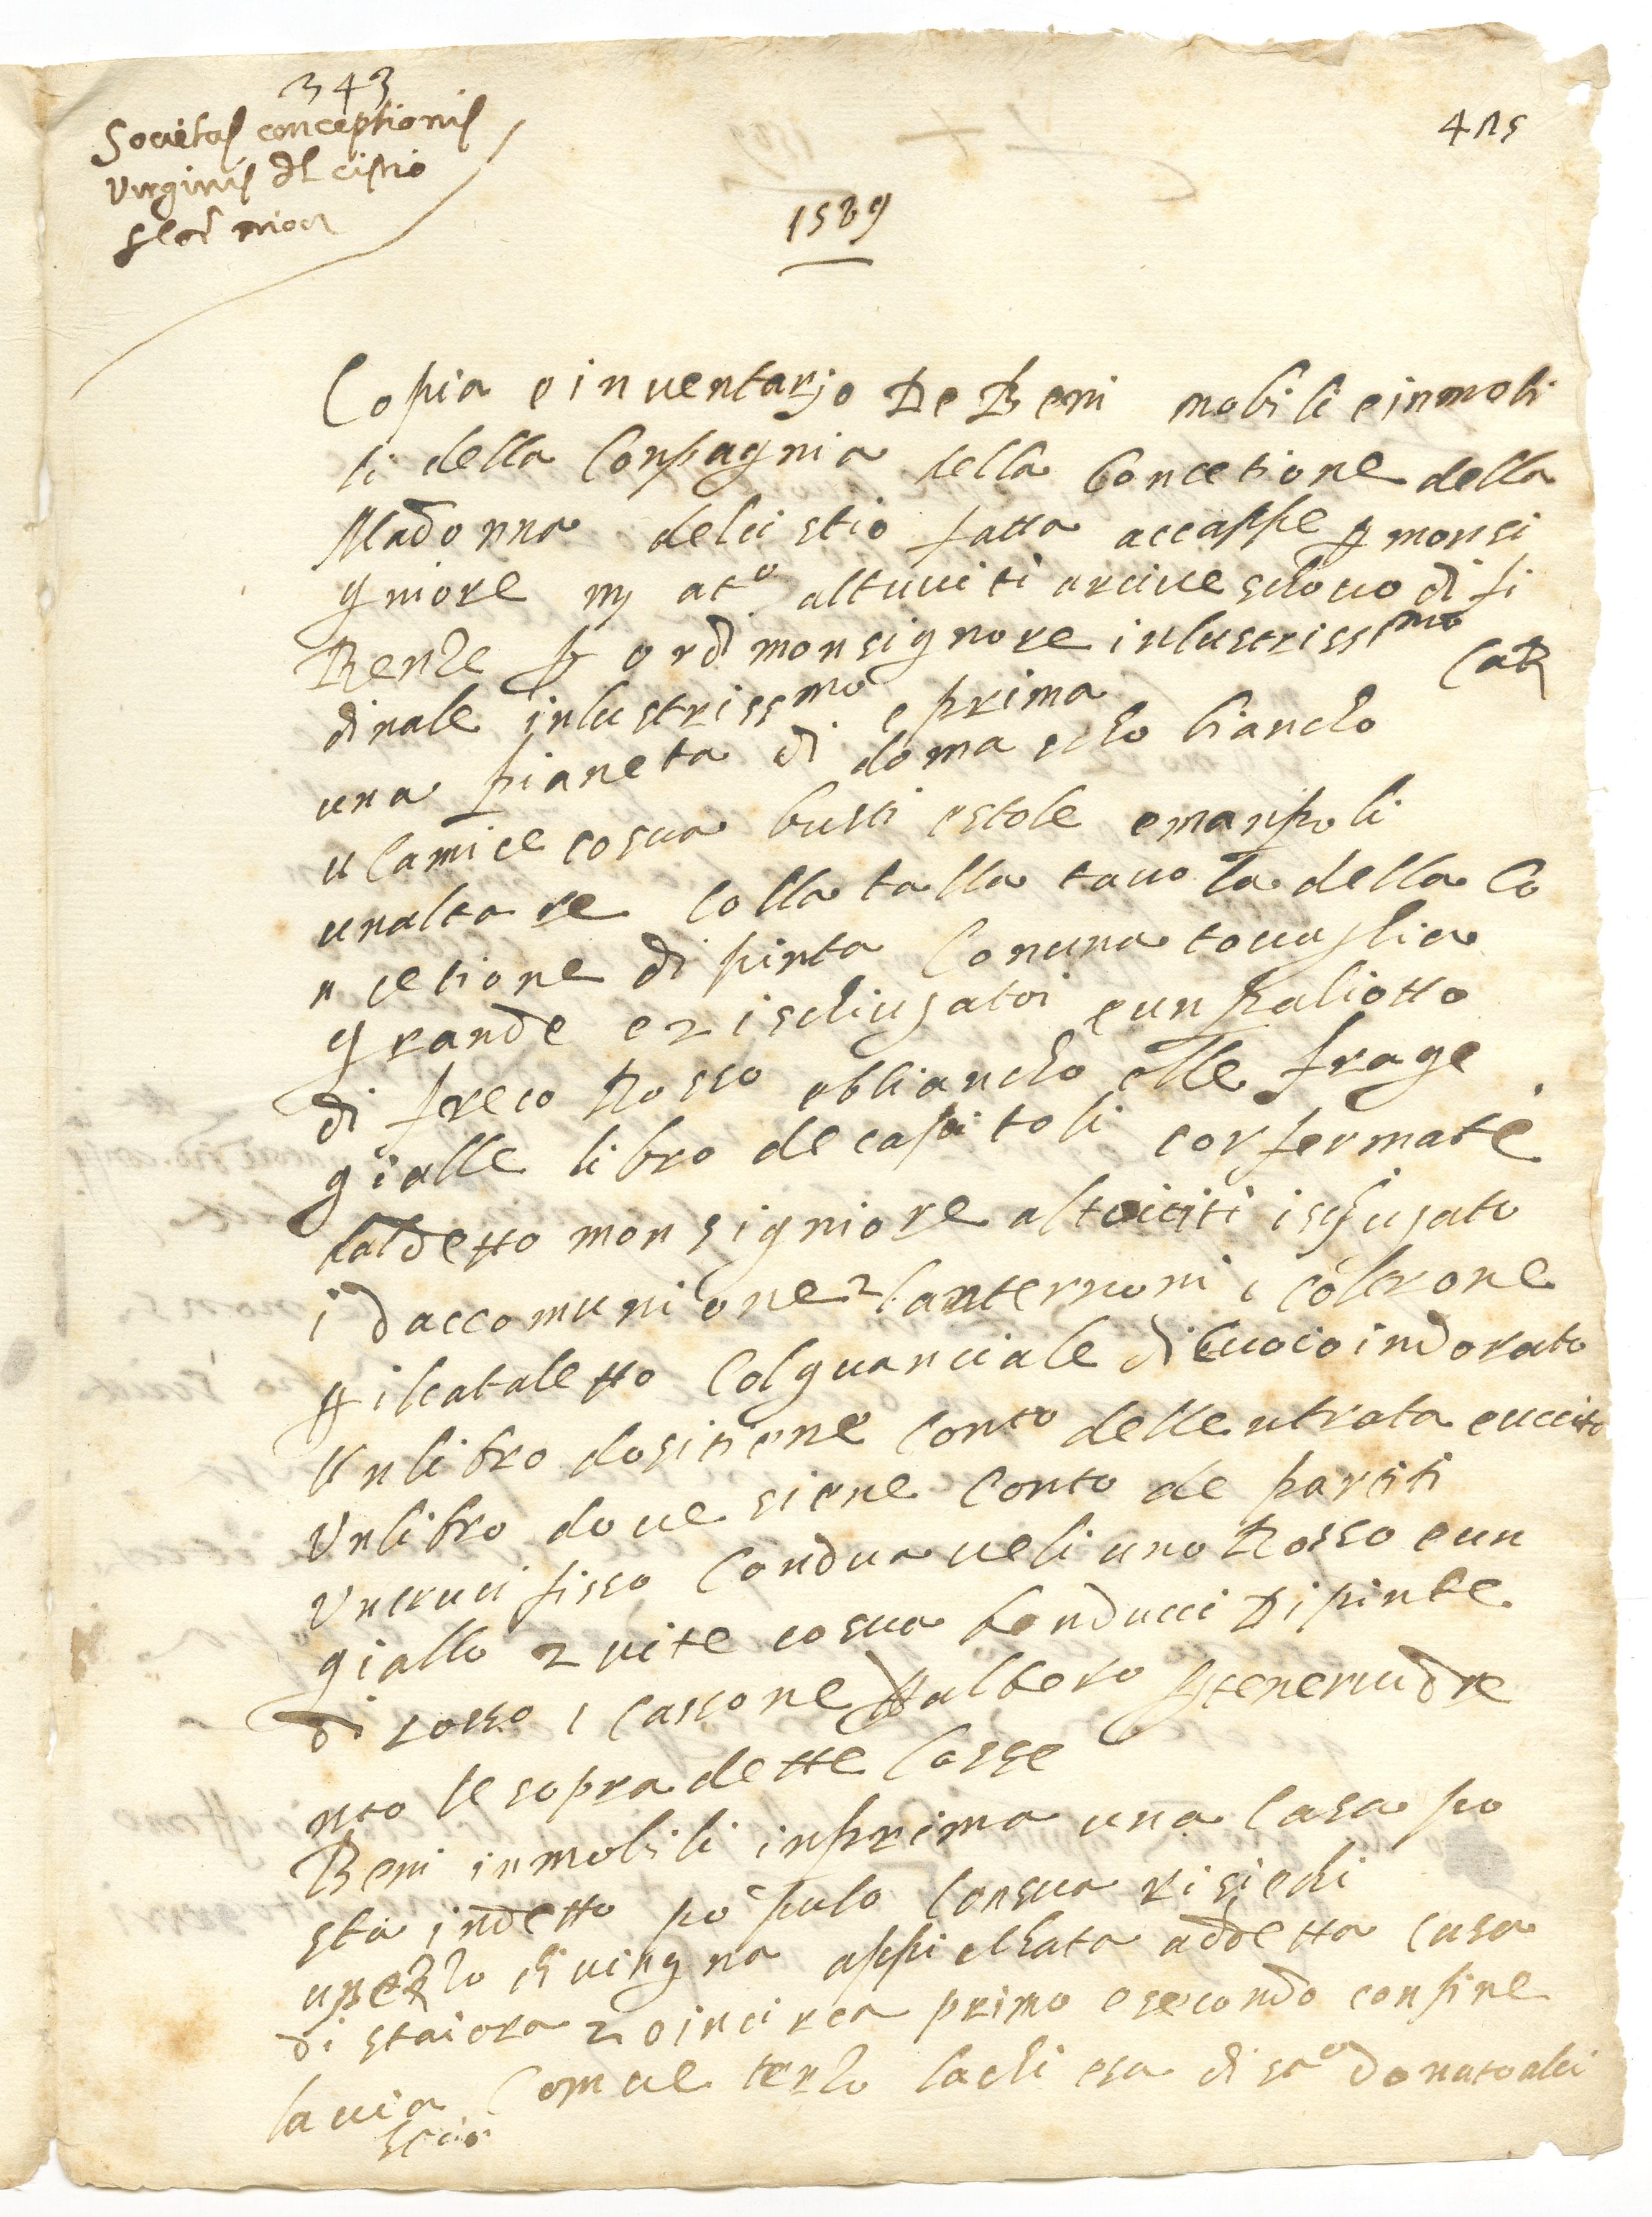 343
Societas conceptionis
Virginis del cistio

415
1589
Copia e inventario De Beni mobili e inmobi
li della Conpagnia della Concetione della
Madonna del cistio fatta accasse p monsi
gniore at.o altuuiti arciueschouo di fi
Renze p ord monsignore inlustrissmo CaR
dinale inlustrissmo e prima
una pianeta di domascho biancho
u Camice cosua busti estole emanipoli
unaltare colla talla tauola della Co
ncetione dipinta Conuna touaglia
grande e 2 ischiugatoi e un paliotto
di freco Rosso ebbiancho elle frage
gialle libro de capitoli confermate
daldetto monsigniore altouiti ischiugato
i daccomunione 2 lanternoni 1 coltrone
p ilcataletto Colguanciale di Cuoio indorato
Unlibro dositiene conto dellentrata euccita
Unlibro doue siene conto de partiti
Uncrucifisso Condua ueli uno Rosso eun
giallo 2 uite cosua bonducci Dipinte
di rosso 1 cassone dalbero p tenerciudre
nto le sopradette Cosse
Beni inmobili inprima una Casa po
sta indetto popolo Consua risiedi
upezzo di uingna appichata addetta casa
di staiora 2 oincirca primo esecondo confine
lauia Comue terzo lachiesa di s.to donato alci
stio